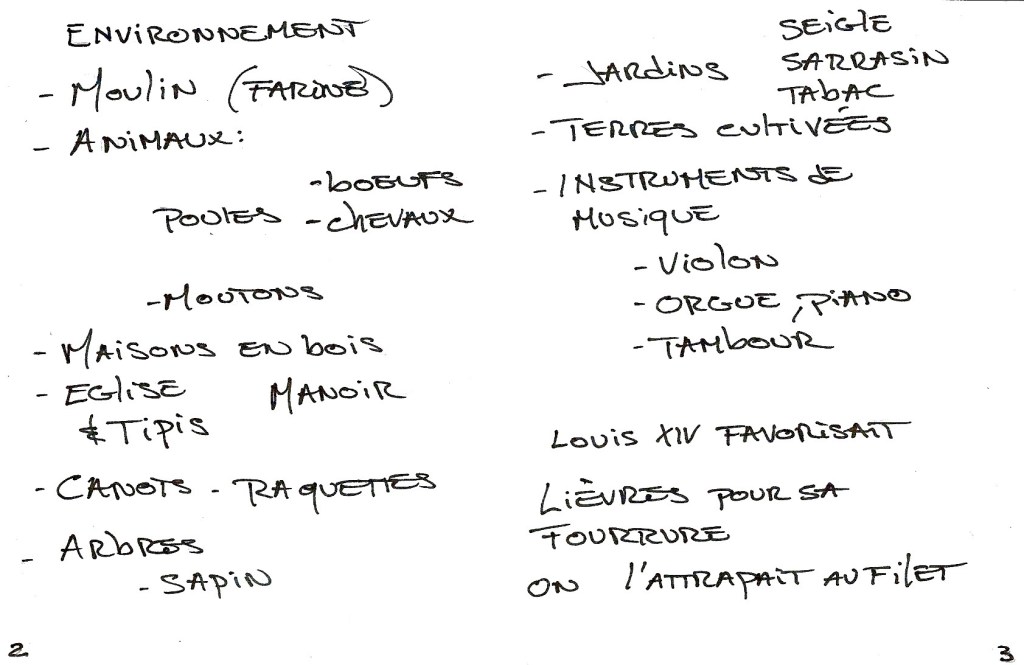 ENVIRONNEMENT
- MOULIN (FARINE)
- ANIMAUX:
- BOEUFS
POULES - CHEVAUX
- MOUTONS
- MAISONS EN BOIS
- EGLISE MANOIR
& TIPIS
- CANOTS - RAQUETTES
- ARBRES
- SAPIN
2
SEIGLE
- JARDINS SARRASIN
TABAC
- TERRES CULTIVÉES
- INSTRUMENTS DE
MUSIQUE
- VIOLON
- ORGUE, PIANO
- TAMBOUR
LOUIS XIV FAVORISAIT
LIÈVRES POUR SA
FOURRURE
ON L'ATTRAPAIT AU FILET
3